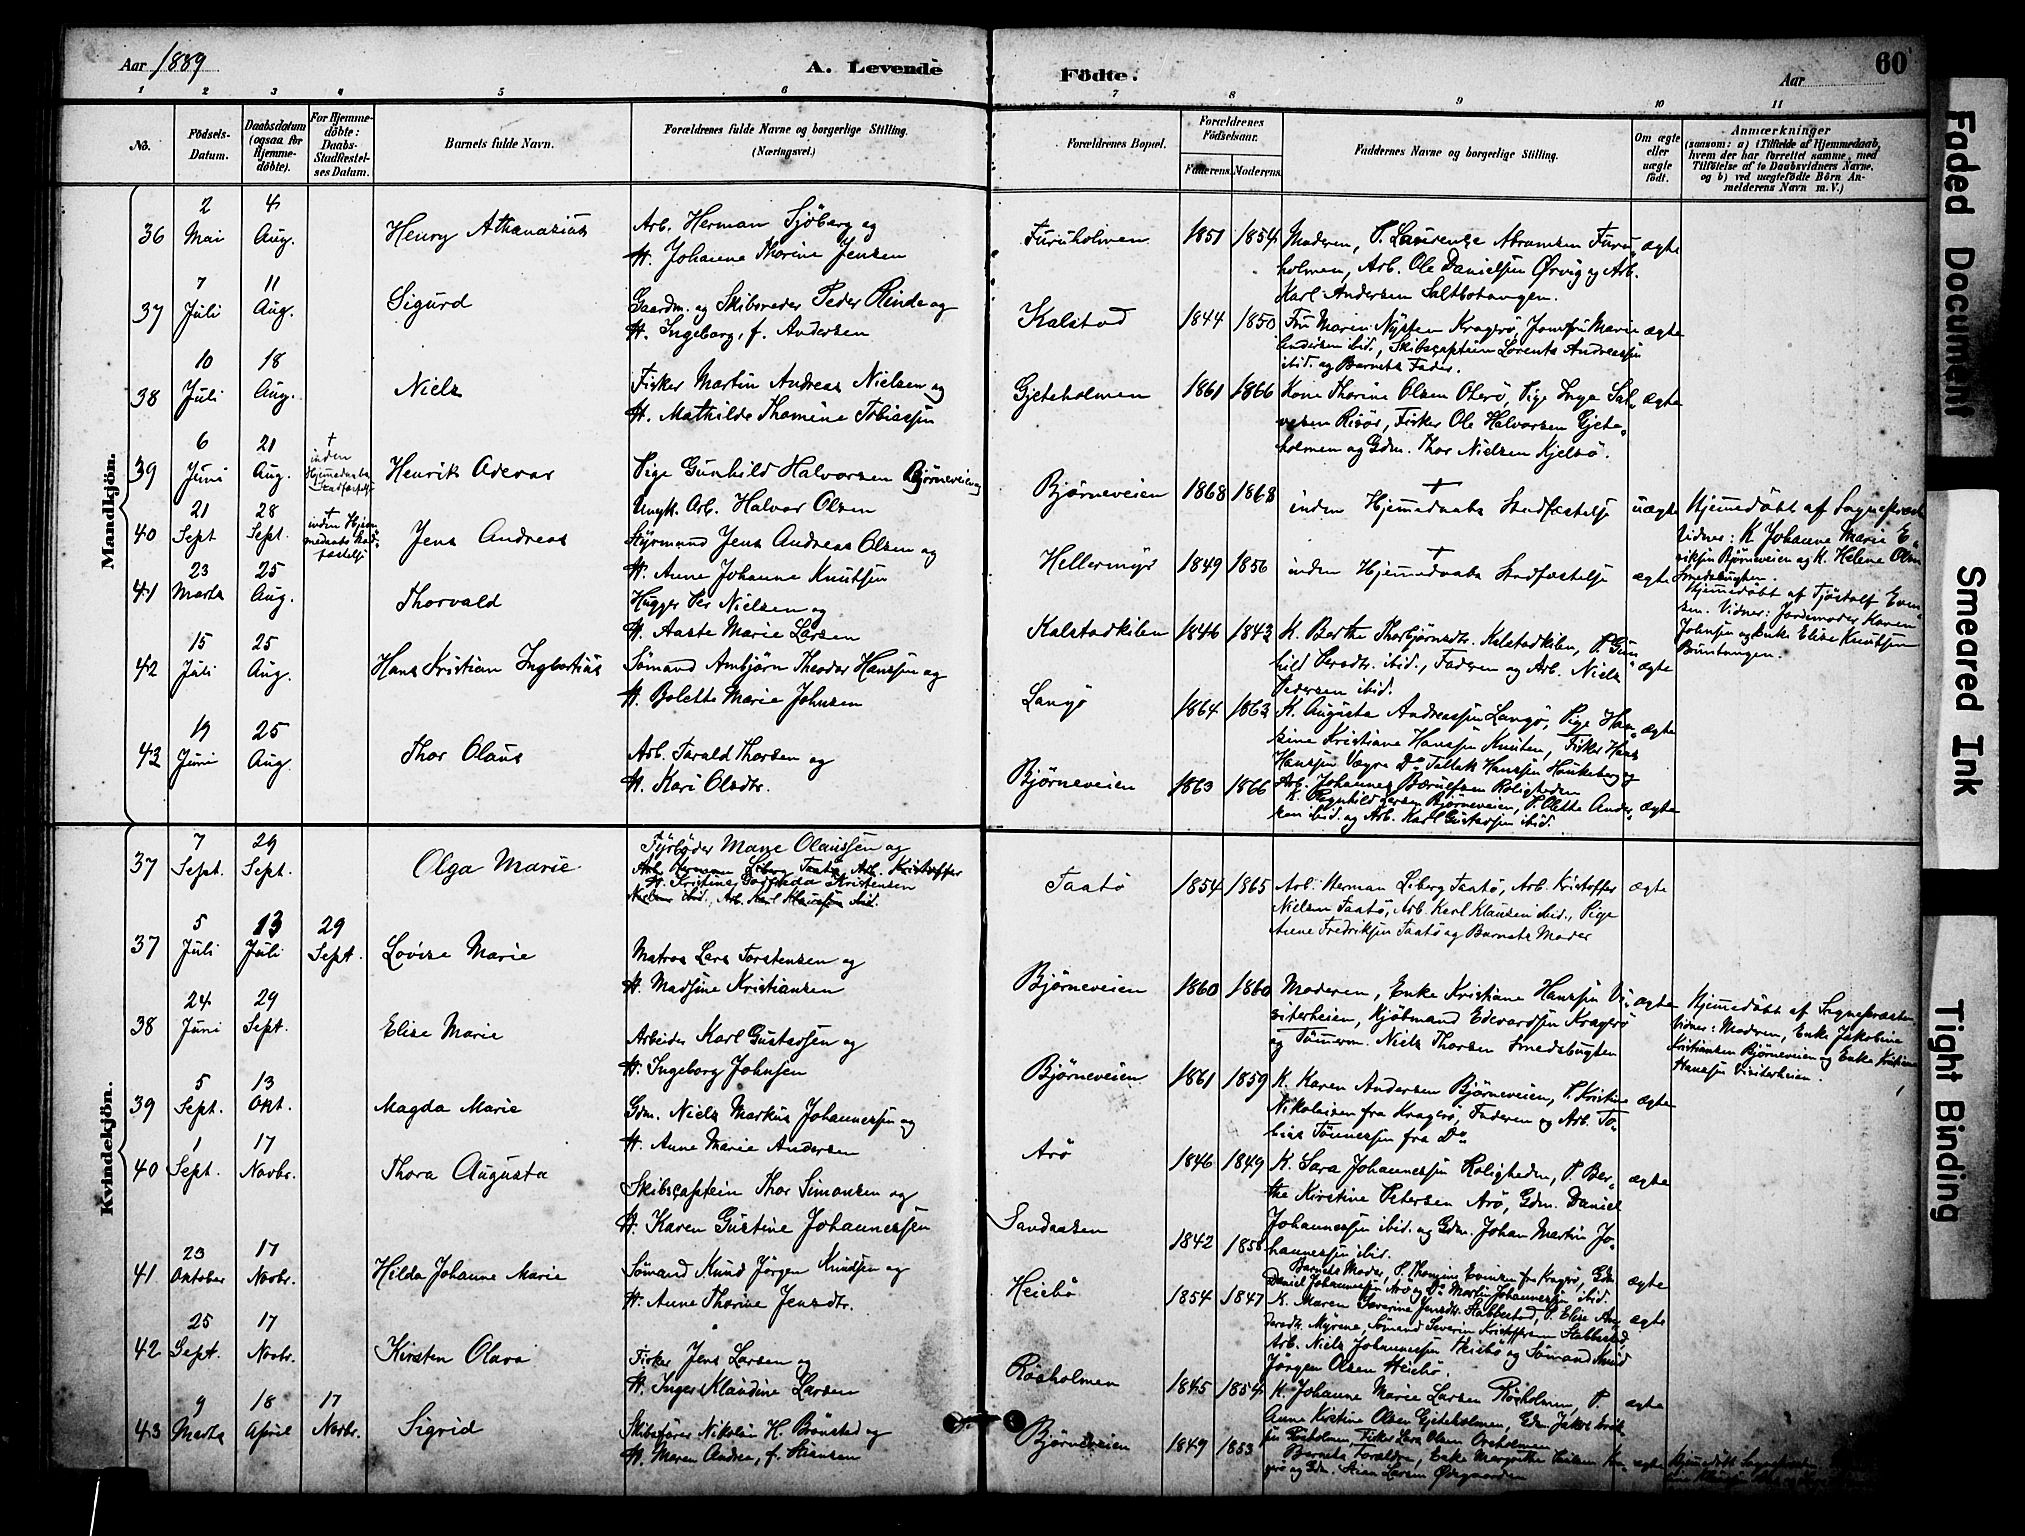 Aar 1889
A. Levende
Födte.
Aar
60
1 2 3 4 5 6 7 8 9 10 11
No.
Födsels-Datum.
Daabsdatum (ogsaa for Hjemme-döbte).
For Hjemme-döbte: Daabs-Stadfæstel-ses Datum.
Barnets fulde Navn.
Forældrenes fulde Navne og borgerlige Stilling.
(Næringsvei.)
Forældrenes Bopæl.
Forældrenes Födselsaar.
Faderens. Moderens.
Faddernes Navne og borgerlige Stilling.
Om ægte eller uægte födt.
Anmærkninger
(saasom: a) i Tilfælde af Hjemmedaab,
hvem der har forrettet samme, med
Tilföielse af to Daabsvidners Navne,
og b) ved uægtefödte Börn An-
melderens Navn m. V.)
Mandkjön.
36 2 Mai 4 Aug. Henry Athanasius
Arb. Herman Sjöberg og
H. Johanne Thorine Jensen
Furuholmen 1851 1854
Moderen, P. Laurense Abramsen Furu-
holmen, Arb. Ole Danielsen Ørvig og Arb.
Karl Andersen Saltbotangen.
ægte
37 7 Juli 11 Aug. Sigurd
Gaardm. og Skibsreder Peder Rinde og
H. Ingeborg, f. Andersen
Kalstad 1844 1850
Fru Maren Nysten Kragerö, Jomfru Marie
Andersen ibid., Skibscaptein Lorents Andreassen
ibid. og Barnets Fader.
ægte
38 10 Juli 18 Aug. Niels
Fisker Martin Andreas Nielsen og
H. Mathilde Thomine Tobiassen
Gjeteholmen 1861 1866
Kone Thorine Olsen Oterö, Pige Inga Sal-
vesen Risör, Fisker Ole Halvorsen Gjete-
holmen og Gdm. Thor Nielsen Kjelsö.
ægte
39 6 Juni 21 Aug. † inden Hjemmedaabs Stadfæstelse Henrik Adevar
Pige Gunhild Halvorsen Bjørneveien og
Ungk. Arb. Halvor Olsen
Bjørneveien 1868 1868
† inden Hjemmedaabs Stadfæstelse
uægte
Hjemmedöbt af Sognepræsten
Vidner: K. Johanne Marie E-
riksen Bjørneveien og K. Helene Olsen
Smedsbugten.
40 21 Sept 28 Sept. † inden Hjem-medaabs Stad-fæstelse Jens Andreas
Styrmand Jens Andreas Olsen og
H. Anne Johanne Knutsen
Hellermyr 1849 1856
† inden Hjemmedaabs Stadfæstelse
ægte
Hjemmedöbt af Tjöstolf Even-
sen. Vidner: Jordemoder Karen
Johnsen og Enke Elise Knutsen
Bruntangen.
41 23 Marts 25 Aug. Thorvald
Hugger Per Nielsen og
H. Aaste Marie Larsen
Kalstadkilen 1846 1843
K. Berthe Thorbjørnsdtr. Kalstadkilen, P. Gun-
hild Persdtr. ibid., Faderen og Arb. Niels
Pedersen ibid.
ægte
42 15 Juli 25 Aug. Hans Kristian Ingbertius
Sømand Ambjörn Theodor Hanssen og
H. Bolette Marie Johnsen
Langö 1864 1863
K. Augusta Andreassen Langö, Pige Han-
sine Kristiane Hanssen Knuten, Fisker Hans
Hanssen Vægre Do Tallak Hanssen Haukeberg og
Arb. Johannes Bærulfsen Roligheden
ægte
43 19 Juni 25 Aug. Thor Olaus
Arb. Tarald Thorsen og
H. Kari Olsdtr.
Bjørneveien 1863 1866
K. Ragnhild Larsen Bjørneveien, P. Olette Ander-
sen ibid. og Arb. Karl Gustavsen ibid.
ægte
Kvindekjön.
37 7 Sept. 29 Sept. Olga Marie
Fyrböder Mane Olaussen og
H. Kristine Kristensen
Taatö 1854 1865
Arb. Herman Liberg Taatö, Arb. Kristoffer
Nielsen Taatö, Arb. Karl Klausen ibid., Pige
Anne Fredriksen Taatö og Barnets Moder
ægte
37 5 Juli 13 Juli 29 Sept. Lovise Marie
Matros Lars Torstensen og
H. Madsine Kristiansen
Bjørneveien 1860 1860
Moderen, Enke Kristiane Hanssen Vi-
siterheien, Kjöbmand Edvardsen Kragerö
og Tömmerm. Niels Thorsen Smedsbugten
ægte
Hjemmedöbt af Sognepræsten
Vidner: Modren, Enke Jakobine
Kristiansen Bjørneveien og Enke Kristiane
Hanssen Visiterheien.
38 24 Juni 29 Sept. Elise Marie
Arbeider Karl Gustavsen og
H. Ingeborg Johnsen
Bjørneveien 1861 1859
K. Karen Andersen Bjørneveien, P. Kristine
Nikolaisen fra Kragerö, Faderen og Arb. To-
bias Tönnessen fra Do
ægte
39 5 Sept. 13 Okt. Magda Marie
Gdm. Niels Markus Johannessen og
H. Anne Marie Andersen
Arö 1846 1849
K. Sara Johannessen Roligheden, P. Ber-
the Kirstine Petersen Arö, Gdm. Daniel
Johannessen ibid. og Gdm. Johan Martin Jo-
hannessen ibid.
ægte
40 1 Sept. 17 Novbr. Thora Augusta
Skibscaptein Thor Simonsen og
H. Karen Gustine Johannessen
Sandaasen 1842 1855
Barnets Moder, P. Thomine Evensen fra Kragerö, Gdm.
Daniel Johannessen Arö og Do Martin Johannessen ibid.
ægte
41 23 Oktober 17 Novbr. Hilda Johanne Marie
Sömand Knud Jørgen Knudsen og
H. Anne Thorine Jensdtr.
Heisö 1854 1847
K. Maren Severine Jensdtr. Stabbestad, P. Elise An-
dersdtr. Myrene, Sömand Severin Kristoffersen Stabbestad,
Arb. Niels Johannessen Heisö og Sömand Knud
Jørgen Olsen Heisö.
ægte
42 25 Sept. 17 Novbr. Kirsten Olava
Fisker Jens Larsen og
H. Inger Klaudine Larsen
Röisholmen 1845 1854
K. Johanne Marie Larsen Röisholmen, P.
Anne Kirstine Olsen Gjeteholmen, Gdm. Jakob
Röisholmen, Fisker Lars Olsen
ægte
43 9 Marts 18 April 17 Novbr. Sigrid
Skibsfører Nikolai H. Brönsted og
H. Maren Andrea, f. Stensen
Bjørneveien 1849 1853
Barnets Forældre, Enke Margrethe
og Gdm. Larsen
ægte
Hjemmedöbt Sognepræsten
Faded Document
Smeared Ink
Tight Binding